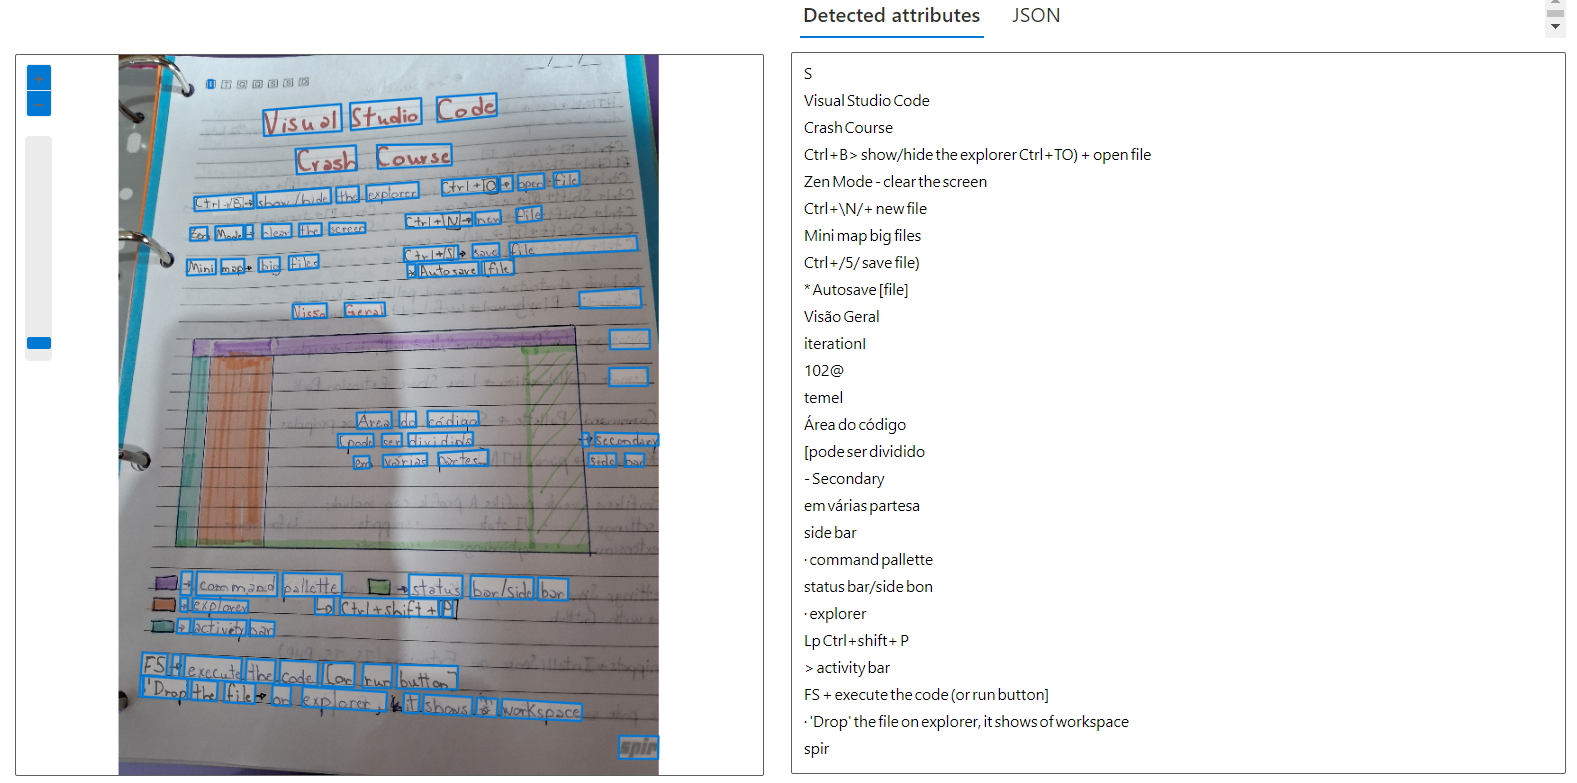 Detected attributes JSON
S
Visual Studio Code
Crash Course
Ctrl+B> show/hide the explorer Ctrl+TO) + open file
Zen Mode - clear the screen
Ctrl+\N/+ new file
Mini map big files
Ctrl+/5/ save file)
* Autosave [file]
Visão Geral
iterationI
102@
temel
Área do código
[pode ser dividido
- Secondary
em várias partesa
side bar
· command pallette
status bar/side bon
· explorer
Lp Ctrl+shift+ P
> activity bar
FS + execute the code (or run button]
· 'Drop' the file on explorer, it shows of workspace
spir
Visual Studio Code
Crash Course
Ctrl+B → show/hide the explorer
Ctrl+O → open file
Zen Mode → clear the screen
Ctrl+N → new file
Mini map → big files
Ctrl+S → save file
* Autosave [file
Visão Geral
Área do código
[pode ser dividido
em várias partes]
→ secondary
side bar
→ command pallette
→ status bar/side bar
→ explorer
Ctrl+shift+P
→ activity bar
F5 → execute the code [or run button]
'Drop' the file → on explorer, it shows workspace
spir